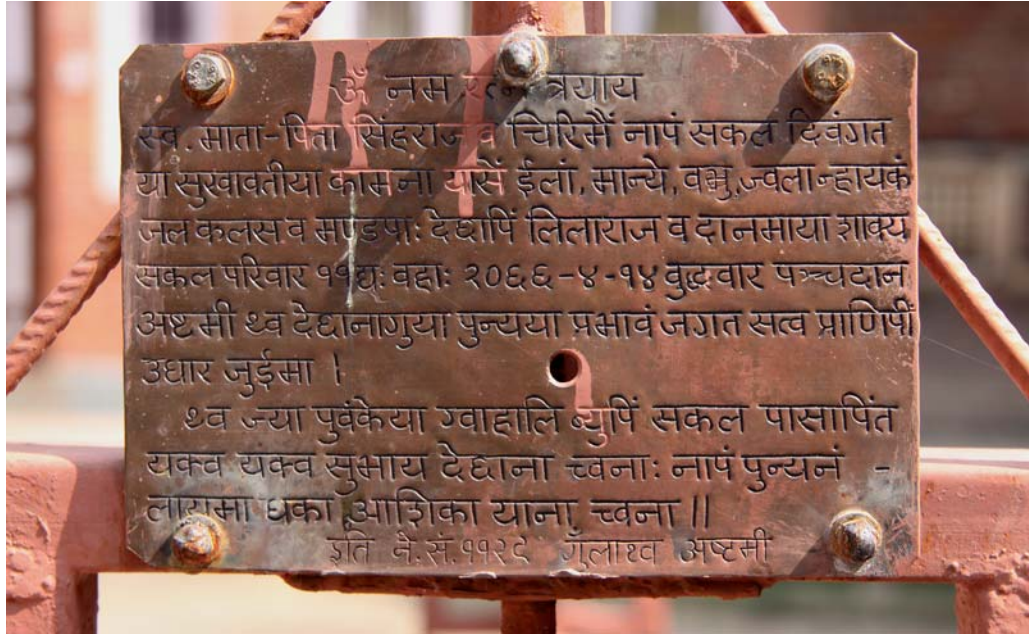 ॐ नम रत्न त्रयाय
स्व. माता-पिता सिंहराज व चिरिमैं नापं सकल दिवंगत
या सुखावतीया कामना यासें ईलां, मान्ये, वभु, ज्वलान्हायकं
जल कलस व मण्डपाः देछापिं लिलाराज व दानमाया शाक्य
सकल परिवार ११द्यः वहाः २०६६-४-१४ वुद्धवार पञ्चदान
अष्टमी थ्व देछानागुया पुन्यया प्रभावं जगत सत्व प्राणिपीं
उधार जुईमा ।
थ्व ज्या पुवंकेया ग्वाहालि ब्युपिं सकल पासापिंत
यक्व यक्व सुभाय देछाना च्वनाः नापं पुन्यनं -
लायमा धका आशिका याना च्वना ॥
इति ने.सं. ११२९ गुँलाथ्व अष्टमी